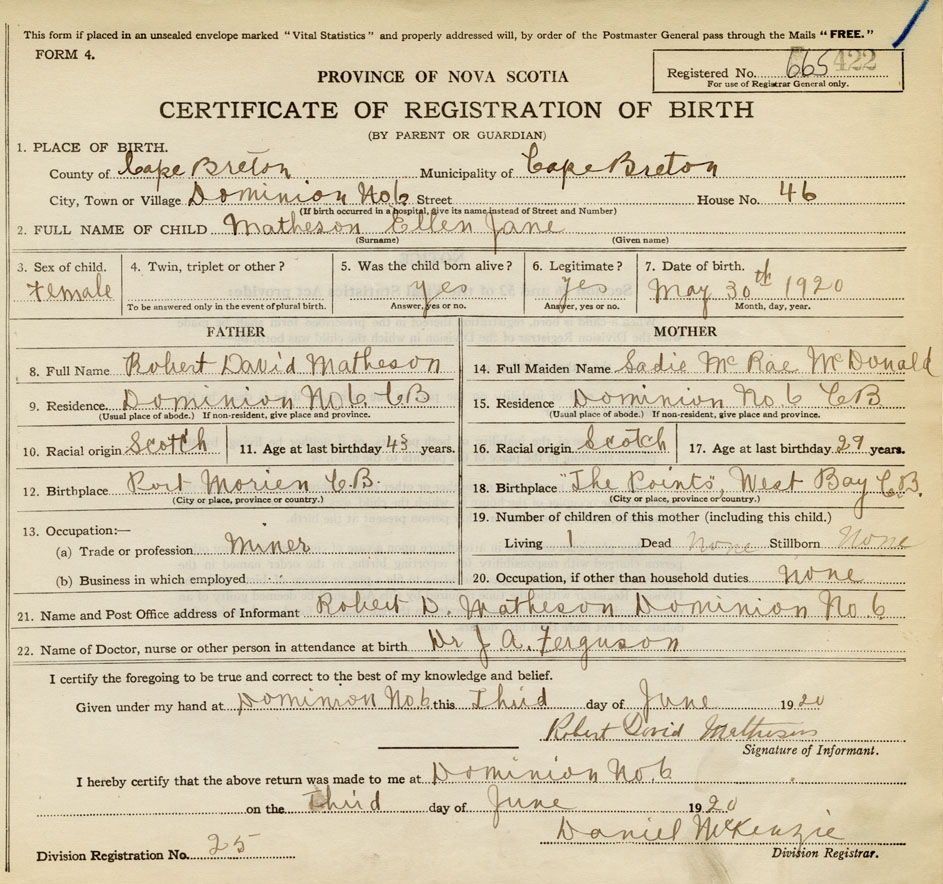 This form if placed in an unsealed envelope marked "Vital Statistics" and properly addressed will, by order of the Postmaster General pass through the Mails "FREE."
FORM 4.
PROVINCE OF NOVA SCOTIA
Registered No. 665 422
For use of Registrar General only.
CERTIFICATE OF REGISTRATION OF BIRTH
(BY PARENT OR GUARDIAN)
1. PLACE OF BIRTH.
County of Cape Breton Municipality of Cape Breton
City, Town or Village Dominion No 6 Street House No. 46
(If birth occurred in a hospital, give its name instead of Street and Number)
2. FULL NAME OF CHILD Matheson Ellen Jane
(Surname) (Given name)
3. Sex of child. 4. Twin, triplet or other? 5. Was the child born alive? 6. Legitimate? 7. Date of birth.
Female yes yes May 30th 1920
To be answered only in the event of plural birth. Answer, yes or no. Answer, yes or no. Month, day, year.
FATHER
8. Full Name Robert David Matheson
9. Residence. Dominion No 6 C B
(Usual place of abode.) If non-resident, give place and province.
10. Racial origin Scotch 11. Age at last birthday 43 years.
12. Birthplace Port Morien C.B.
(City or place, province or country.)
13. Occupation:—
(a) Trade or profession Miner
(b) Business in which employed
MOTHER
14. Full Maiden Name Sadie McRae McDonald
15. Residence Dominion No 6 C B
(Usual place of abode.) If non-resident, give place and province.
16. Racial origin Scotch 17. Age at last birthday 29 years.
18. Birthplace "The Points", West Bay C.B.
(City or place, province or country.)
19. Number of children of this mother (including this child.)
Living 1 Dead None Stillborn None
20. Occupation, if other than household duties. None
21. Name and Post Office address of Informant Robert D. Matheson Dominion No. 6
22. Name of Doctor, nurse or other person in attendance at birth Dr J A. Ferguson
I certify the foregoing to be true and correct to the best of my knowledge and belief.
Given under my hand at Dominion No 6 this Third day of June 1920
Robert David Matheson
Signature of Informant.
I hereby certify that the above return was made to me at Dominion No 6
on the Third day of June 1920
Daniel McKenzie
Division Registration No. 25 Division Registrar.